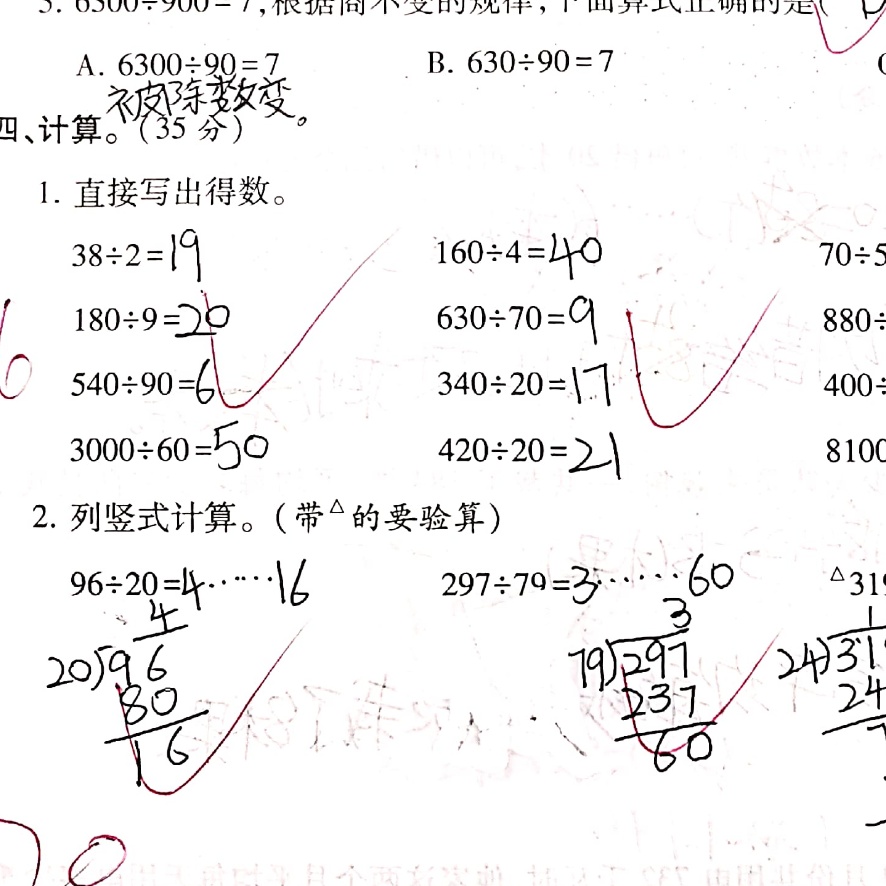 3. 6300÷900=7,根据商不变的规律,下面算式正确的是(
A. 6300÷90=7 B. 630÷90=7
被除数变。
四、计算。(35分)
1. 直接写出得数。
38÷2=19 160÷4=40 70÷5
180÷9=20 630÷70=9 880÷
540÷90=6 340÷20=17 400÷
3000÷60=50 420÷20=21 8100
2. 列竖式计算。(带△的要验算)
96÷20=4……16 297÷79=3……60 △319
4 3 1
20)96 79)297 24)319
80 237 24
16 60 7